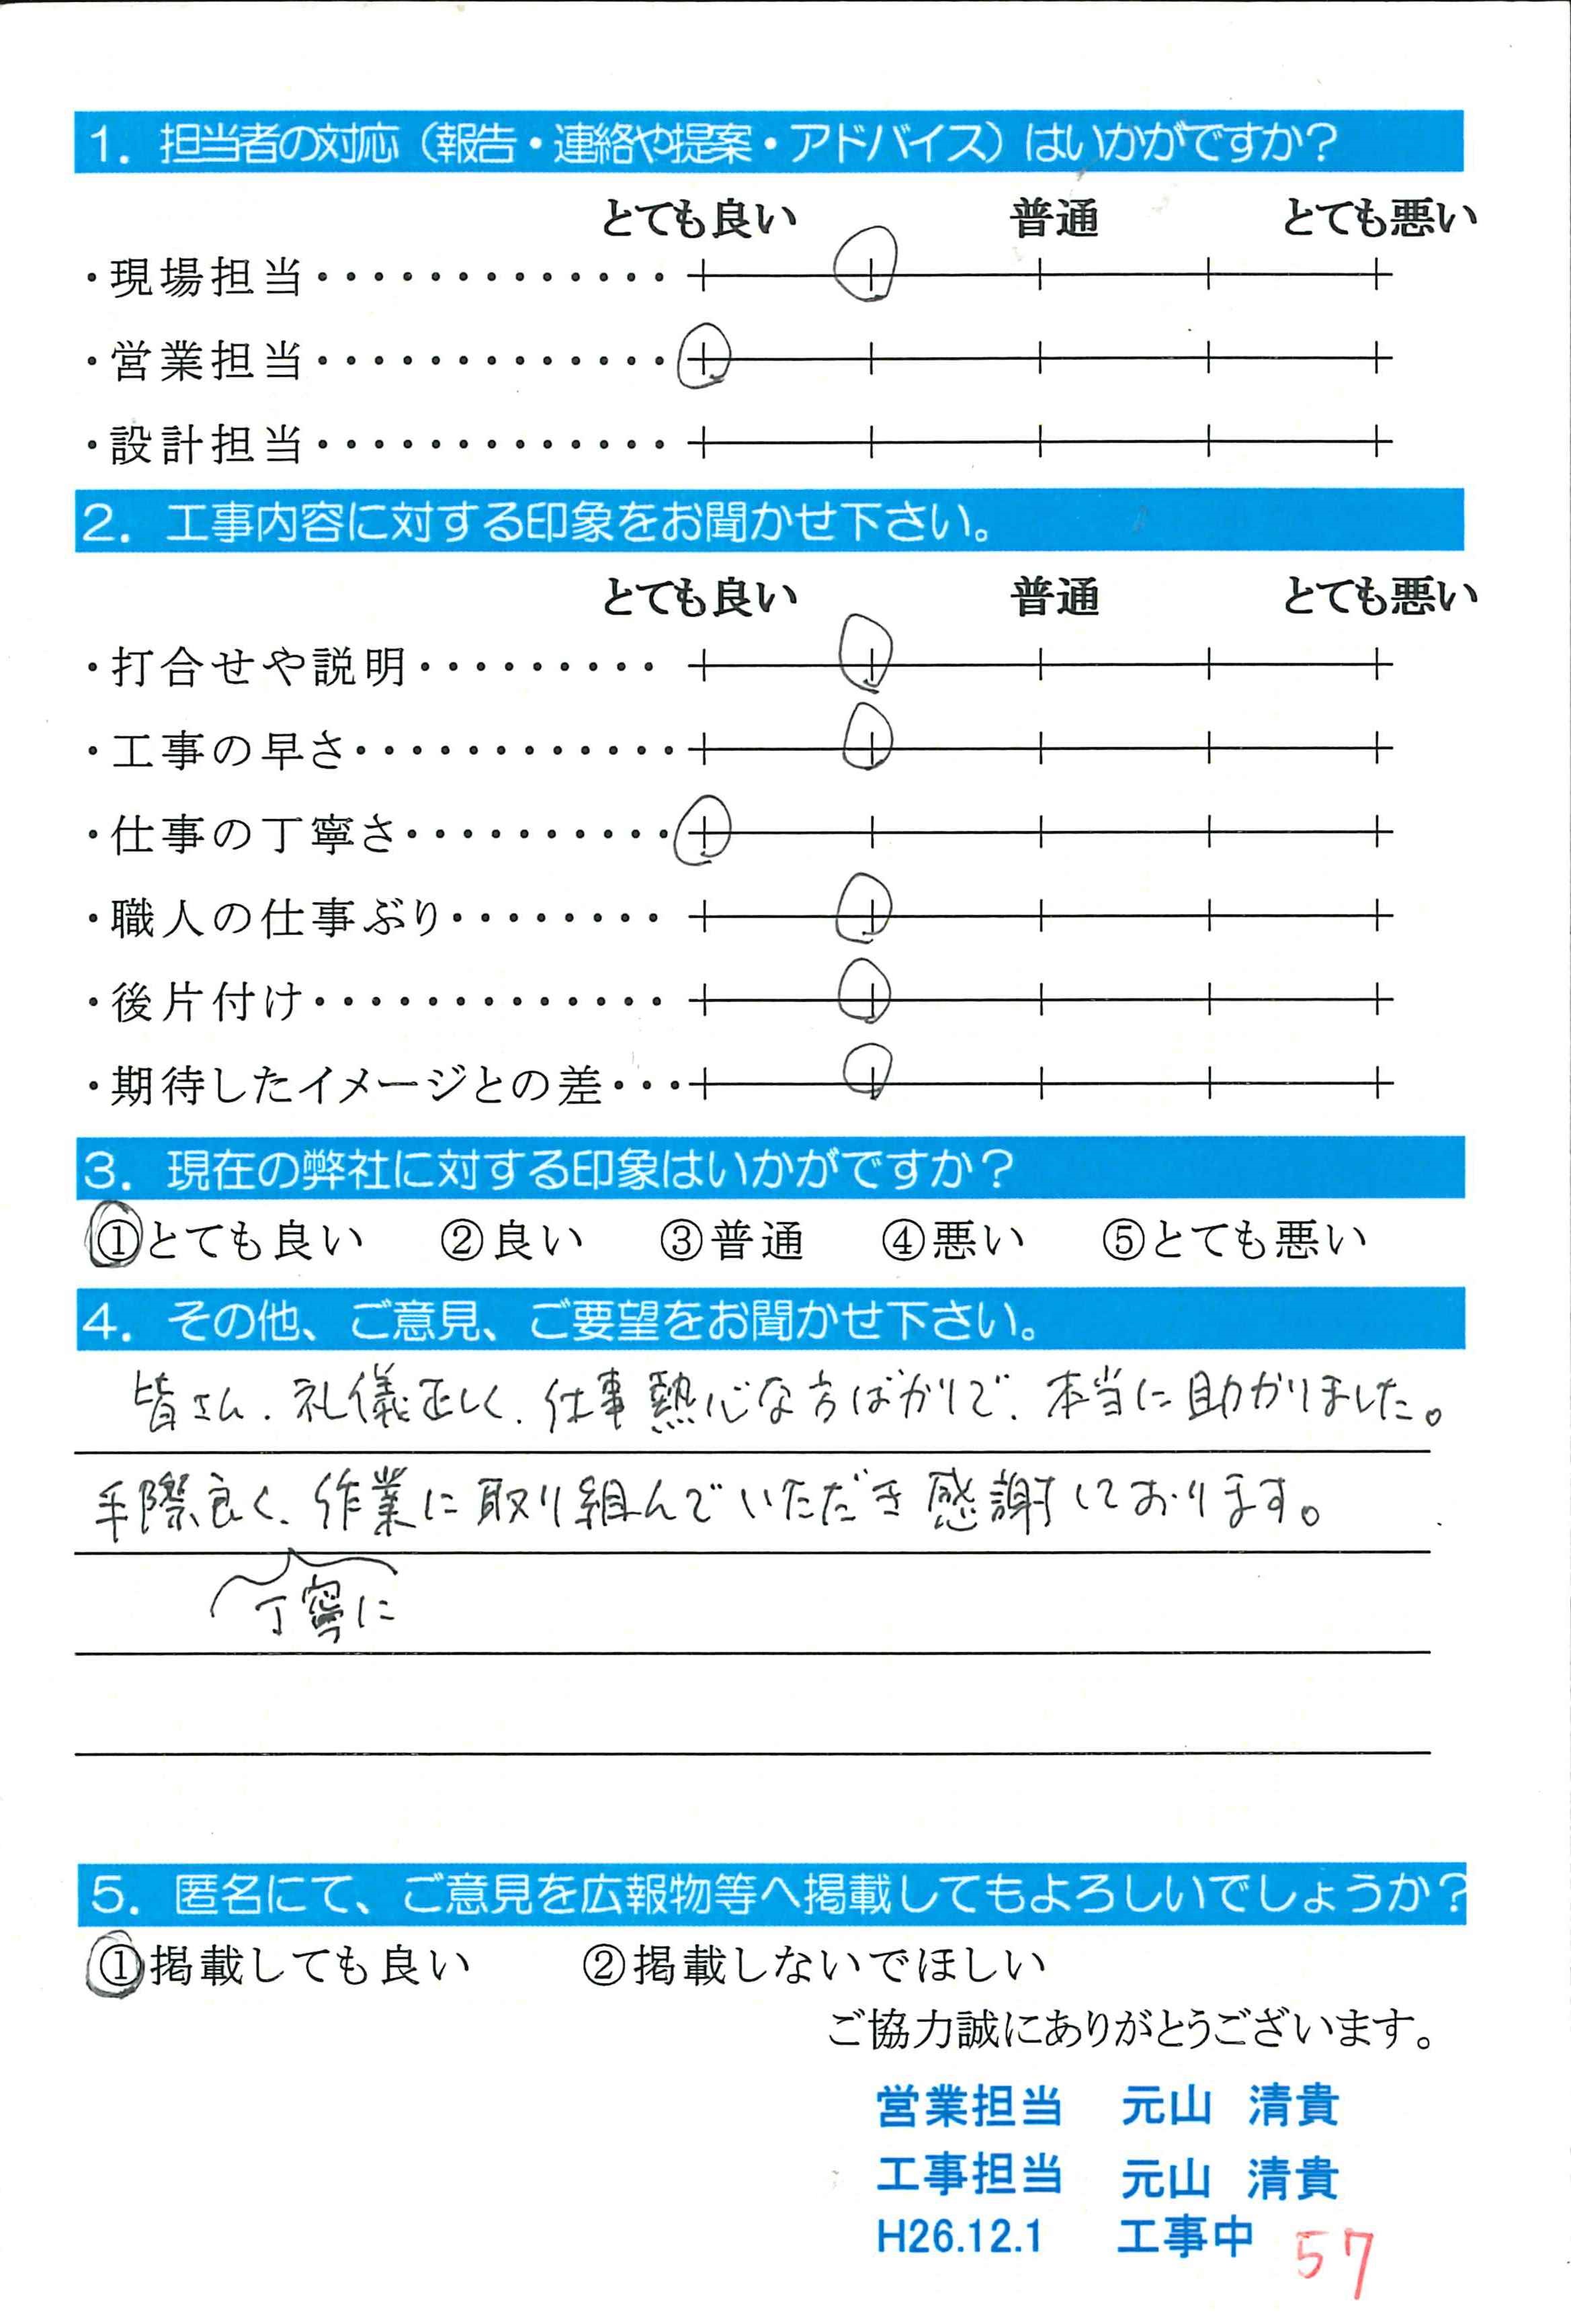 1．担当者の対応（報告・連絡や提案・アドバイス）はいかがですか？
とても良い　普通　とても悪い
・現場担当・・・・・・・・・・・・・
・営業担当・・・・・・・・・・・・・
・設計担当・・・・・・・・・・・・・
2．工事内容に対する印象をお聞かせ下さい。
とても良い　普通　とても悪い
・打合せや説明・・・・・・・・・
・工事の早さ・・・・・・・・・・・・
・仕事の丁寧さ・・・・・・・・・・
・職人の仕事ぶり・・・・・・・・
・後片付け・・・・・・・・・・・・・
・期待したイメージとの差・・・
3．現在の弊社に対する印象はいかがですか？
①とても良い　②良い　③普通　④悪い　⑤とても悪い
4．その他、ご意見、ご要望をお聞かせ下さい。
皆さん、礼儀正しく、仕事熱心な方ばかりで、本当に助かりました。
手際良く、作業に取り組んでいただき感謝しております。
丁寧に
5．匿名にて、ご意見を広報物等へ掲載してもよろしいでしょうか？
①掲載しても良い　②掲載しないでほしい
ご協力誠にありがとうございます。
営業担当　元山　清貴
工事担当　元山　清貴
H26.12.1　工事中　57